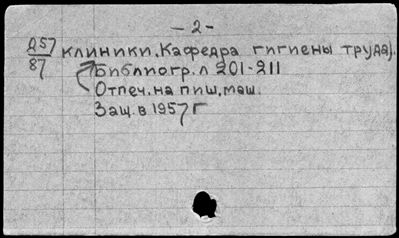 — 2 —
Д57 клиники. Кафедра гигиены труда).
87 Библиогр. л 201-211
Отпеч. на пиш. маш.
Защ. в 1957 г